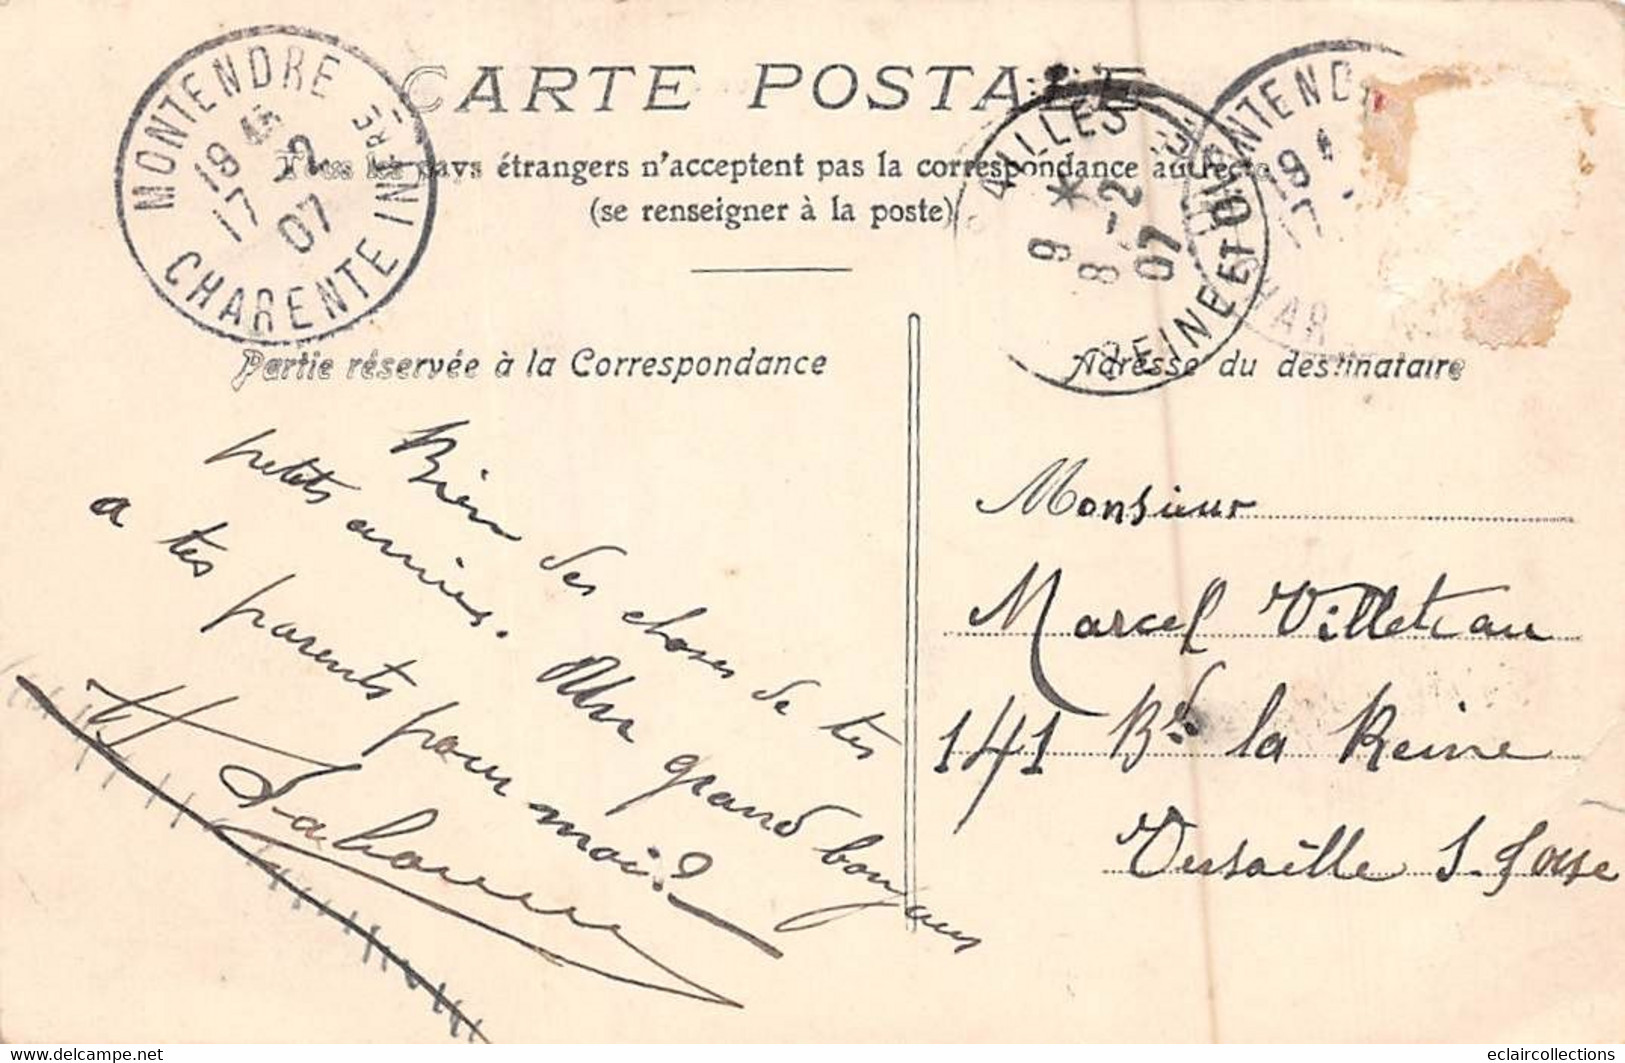 CARTE POSTALE
Tous les pays étrangers n'acceptent pas la correspondance au recto
(se renseigner à la poste)
MONTENDRE
CHARENTE INFRE
19 45
17 - 2
07
AILLES
9 *
8 - 2
07
SEINE ET OISE
MONTEND
19
17
CHAR
Partie réservée à la Correspondance
Adresse du destinataire
Bien des choses de tes
petits amies. Un grand bonjour
a tes parents pour moi?
Monsieur
Marcel Villeteau
141 Bd la Reine
Versaille S.
eclaircollections